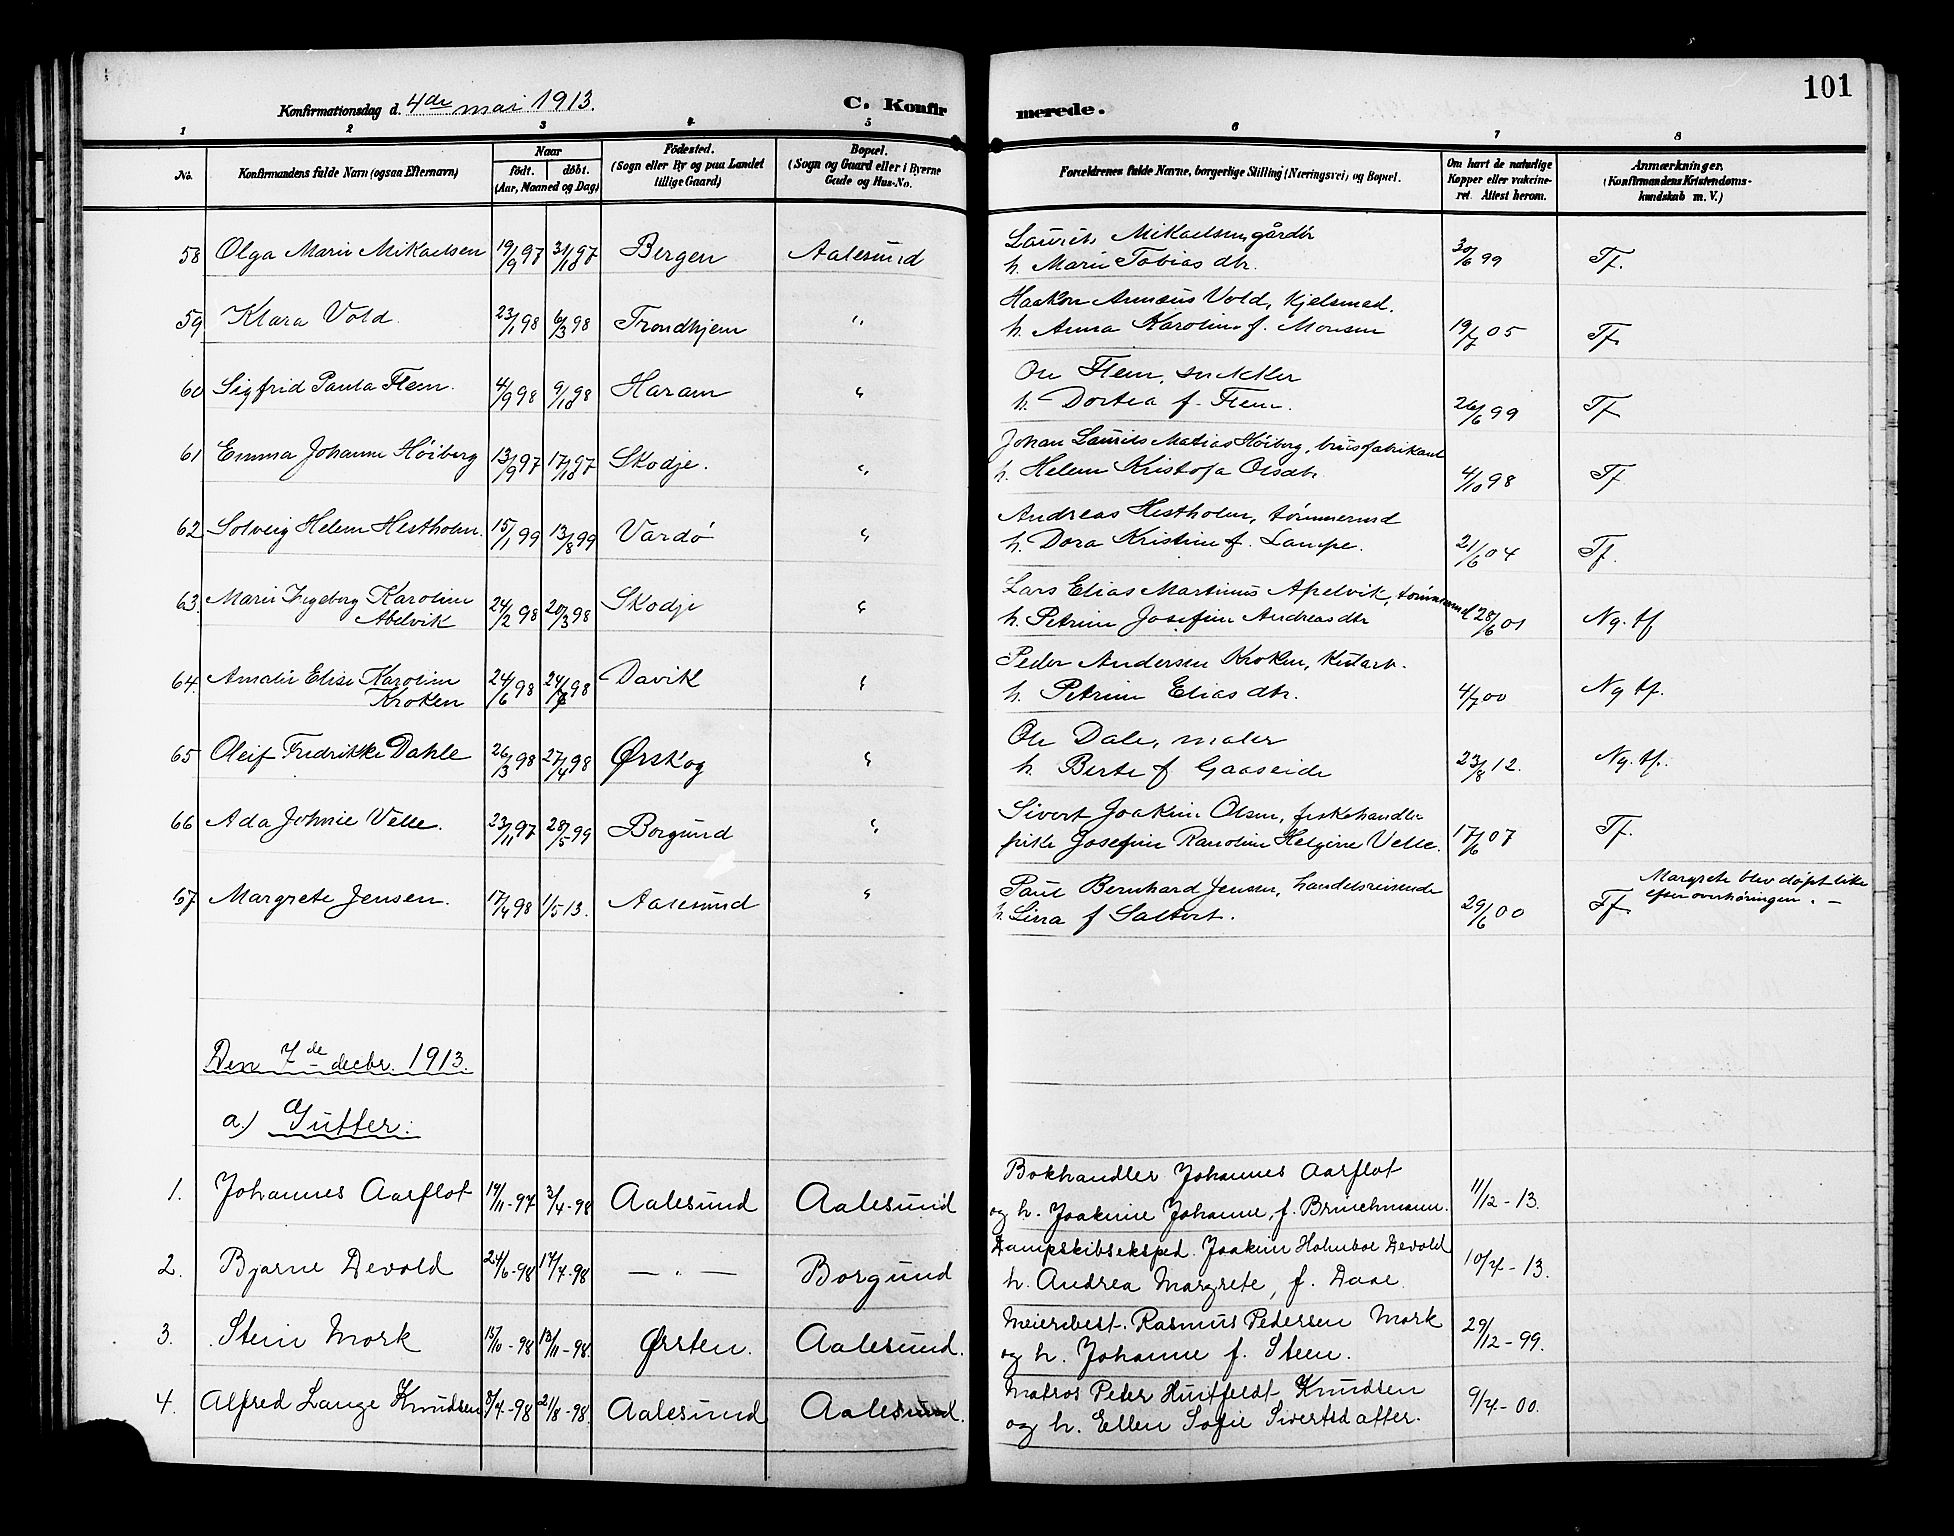 101
Konfirmationsdag d. 4de mai 1913. C. Konfirmerede.
1 2 3 4 5 6 7 8
No. Konfirmandens fulde Navn (ogsaa Efternavn) Naar født. døbt. (Aar, Maaned og Dag) Fødested. (Sogn eller By og paa Landet tillige Gaard) Bopæl. (Sogn og Gaard eller i Byerne Gade og Hus-No.
Forældrenes fulde Navne, borgerlige Stilling (Næringsvei) og Bopæl. Om havt de naturlige Kopper eller vakcineret. Attest herom. Anmærkninger. (Konfirmandens Kristendomskundskab m. V.)
58 Olga Marie Mikaelsen 19/9 97 31/10 97 Bergen Aalesund Laurits Mikaelsen, gårdbr 30/6 99 Tf.
h. Marie Tobiasdtr.
59 Klara Vold. 23/1 98 6/3 98 Trondhjem " Haakon Annæus Vold, kjelsmed. 19/7 05 Tf.
h. Anna Karoline f. Monsen
60 Sigfrid Paula Flem. 4/9 98 9/10 98 Haram " Ole Flem, snekker 26/6 99 Tf
h. Dortea f. Flem.
61 Emma Johanne Høiberg 13/9 97 17/10 97 Skodje. " Johan Laurits Matias Høiberg, brusfabrikant 4/10 98 Tf
h. Helene Kristofa Olsdtr.
62 Solveig Helene Hestholm. 15/1 99 13/8 99 Vardø " Andreas Hestholm, tømmermd 21/6 04 Tf.
h. Dora Kristine f. Lampe.
63. Marie Ingeborg Karoline 24/2 98 20/3 98 Skodje " Lars Elias Martinus Apelvik, tømmermd 28/6 01 Ng. tf
Abelvik h. Petrine Josefine Andreasdtr
64. Amalie Elise Karoline 24/6 98 24/7 98 Davik " Peder Andersen Kroken, kularb. 4/7 00 Ng tf.
Kroken h. Petrine Eliasdtr.
65 Oleif Fredrikke Dahle 26/3 98 27/4 98 Ørskog " Ole Dale, maler 23/8 12. Ng. tf.
h. Berte f Gaaseide
66 Ada Johnie Velle. 23/11 97 28/5 99 Borgund " Sivert Joakim Olsen, fiskehandler 17/6 07 Tf.
pike Josefine Karoline Helgine Velle.
67 Margrete Jensen. 17/4 98 1/5 13. Aalesund " Paul Bernhard Jensen, handelsreisende 29/6 00 Tf. Margrete blev døpt like
h. Lina f Saltvit. efter overhøringen. –
Den 7de decbr. 1913.
a.) Gutter:
1. Johannes Aarflot 14/11-97 3/4-98 Aalesund Aalesund Bokhandler Johannes Aarflot 11/12-13.
og h. Joakime Johanne, f. Brinchmann.
2. Bjarne Devold 24/6-98 17/7-98 — " — Borgund Dampskibseksped. Joakim Holmboe Devold 10/4-13.
h. Andrea Margrete, f. Daae.
3. Stein Mork 15/10-98 13/11-98. Ørsten. Aalesund. Meieribest. Rasmus Pedersen Mork 29/12-99.
og h. Johanne f. Steen.
4. Alfred Lange Knudsen 8/4-98 21/8-98. Aalesund Aalesund. Matros Peter Huitfeldt Knudsen 9/4-00.
og h. Ellen Sofie Sivertsdatter.